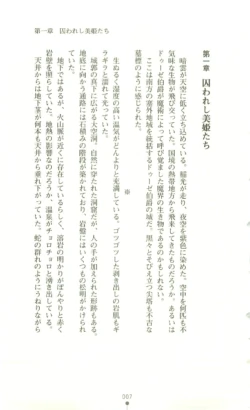 第一章　囚われし美姫たち
第一章　囚われし美姫たち
暗雲が天空に低く立ち込めている。稲光が走り、夜空を紫色に染めた。空中を何匹も不
気味な生物が飛び交っていた。国境の熱帯地方から飛来してきたものだろうか、あるいは
ドゥーゼ伯爵が魔術によって呼び寄せました魔界の生き物であるのかもしれない。
ここは南方の塞外地域を統括するドゥーゼ伯爵の城だ。黒々とそびえ立つ尖塔も不吉な
墓標のように感じられた。
※
生ぬるく湿度の高い温気がどんよりと充満している。ゴツゴツした剥き出しの岩肌も
ラギラと濡れて光っていた。
城郭の真下に広がる大空洞。自然に穿たれた洞窟だが、人の手が加えられた形跡もある。
地底に向かう通路には石積みの階段が築かれており、岩盤にはいくつもの松明がかけられ
ていた。
地下ではあるが、火山脈が近くに存在しているらしく、溶岩の明かりがぼんやりと赤く
岩壁を照らしていた。地熱の影響なのだろうか、温泉がチョロチョロと湧き出している。
天井からは地下茎が何本も天井から垂れ下がっていた。蛇の群れのようにうねりながら
007